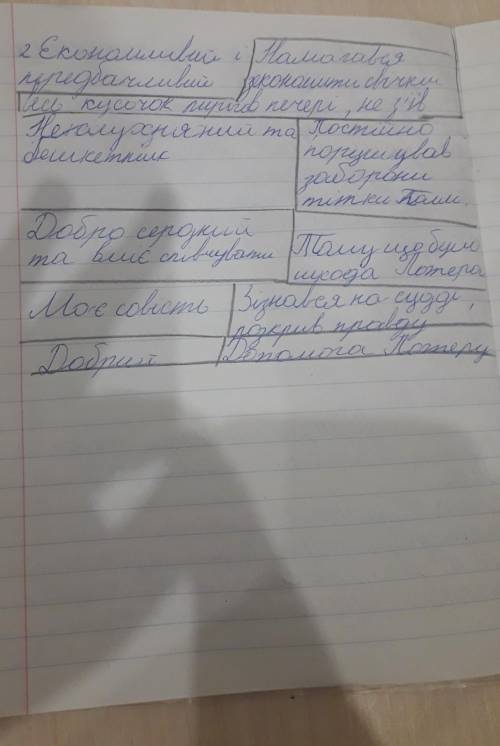 2 Економливий і
передбачливий
Намагався
зекономити свічки
весь кусочок пирога печері, не з'їв
Неслухняний та
бешкетник
Постійно
порушував
заборони
тітки Полли.
Добро сердний
та вміє співчувати
Тому що було
шкода Потера
Має совість
Зізнався на судді,
розкрив правду
Добрий
Допомога Потеру